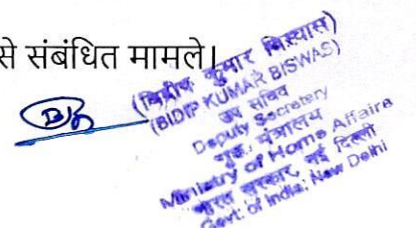 से संबंधित मामले।
(बिदीप कुमार बिस्वास)
(BIDIP KUMAR BISWAS)
उप सचिव
Deputy Secretary
गृह मंत्रालय
Ministry of Home Affairs
भारत सरकार, नई दिल्ली
Govt. of India, New Delhi